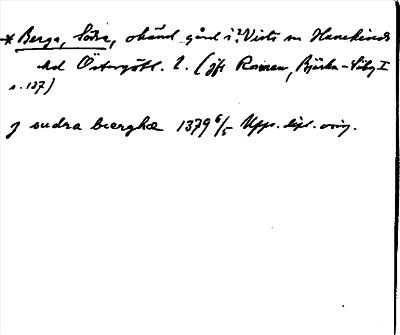 * Berga, Södra, okänd gård i? Vists sn Hanekinds
hd Östergötl. l. (jfr Rosman, Bjärka-Säby I
s. 137)
j sudra bærghæ 1379 6/5 Upps. dipl. orig.